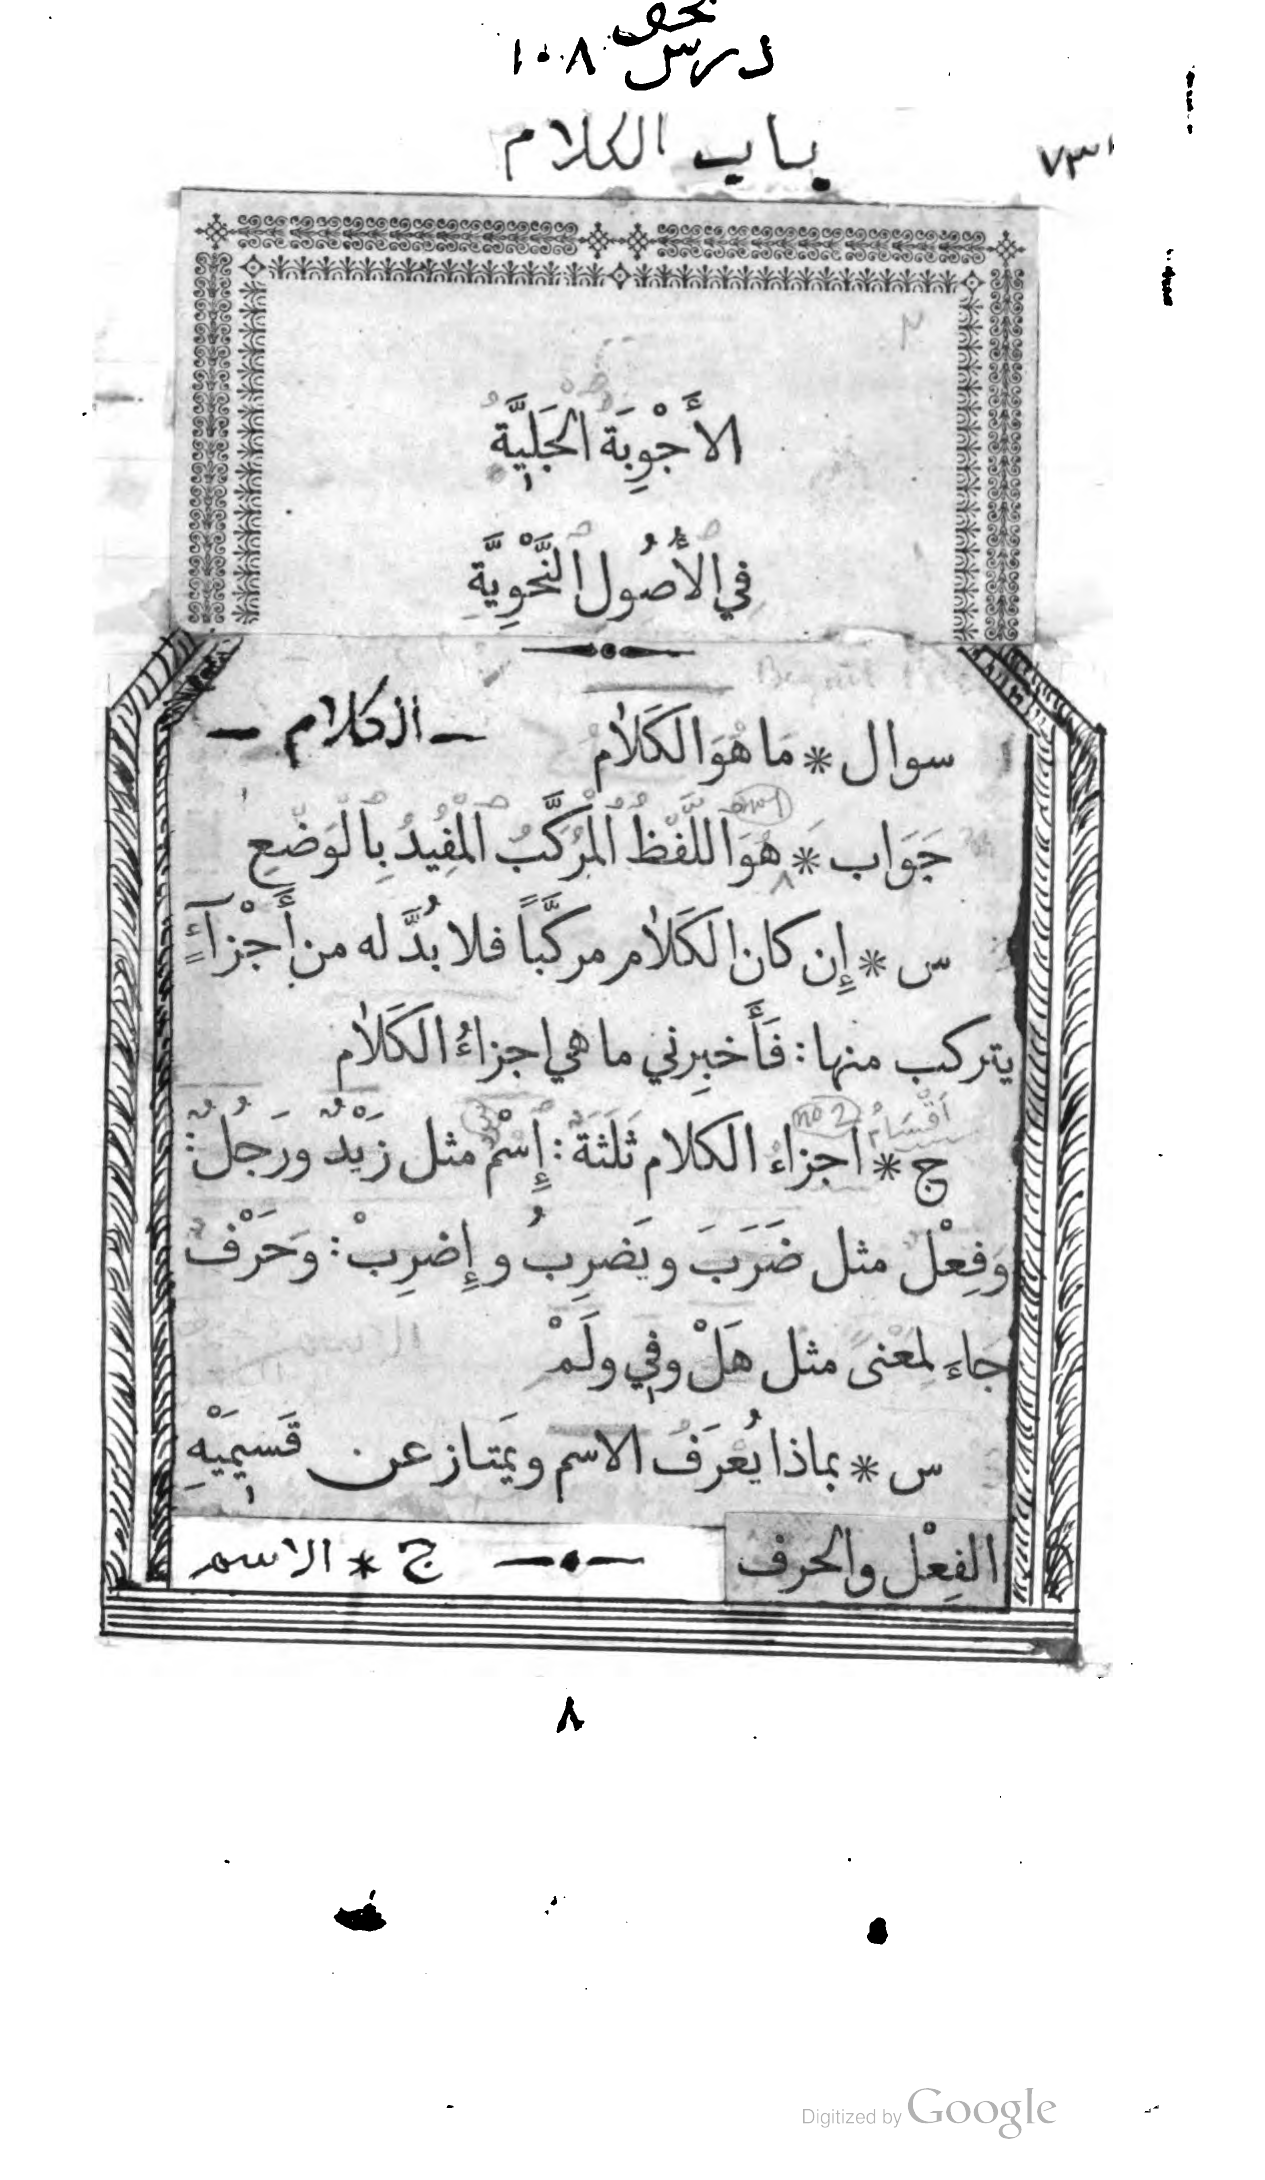 نحو
درس ١٠٨
باب الكلام
٧٣١
الأَجْوِبَةُ الجَلِيَّةُ
فِي الأُصُول النَّحْوِيَّةِ
سوال * مَا هُوَ الكَلَامُ
— الكلام —
جَوَاب * هُوَ اللَّفْظُ المُرَكَّبُ المُفِيدُ بِالْوَضْعِ
no 1
س * إِن كان الكَلَام مركَّباً فلا بُدَّ له من أَجْزآءٍ
يتركب منها: فَأَخبِرني ما هي اجزاءُ الكَلَام
أَقْسَامُ
no 2
ج * اجزاءُ الكلام ثَلَثَةٌ: إِسْمٌ مثل زَيْدٌ ورَجُلٌ:
وَفِعْلٌ مثل ضَرَبَ ويَضرِبُ وإِضرِبْ: وَحَرْفٌ
جَاءَ لِمَعْنىً مثل هَلْ وفِي ولَمْ
س * بماذا يُعْرَفُ الاسم ويَمتاز عن قَسِيمَيْهِ
الفِعْل والحرف —•— ج * الاسم
٨
Digitized by Google